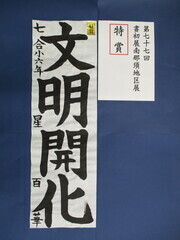 第七十七回
書初展南那須地区展
特賞
文明開化
七合小六年 星 百華